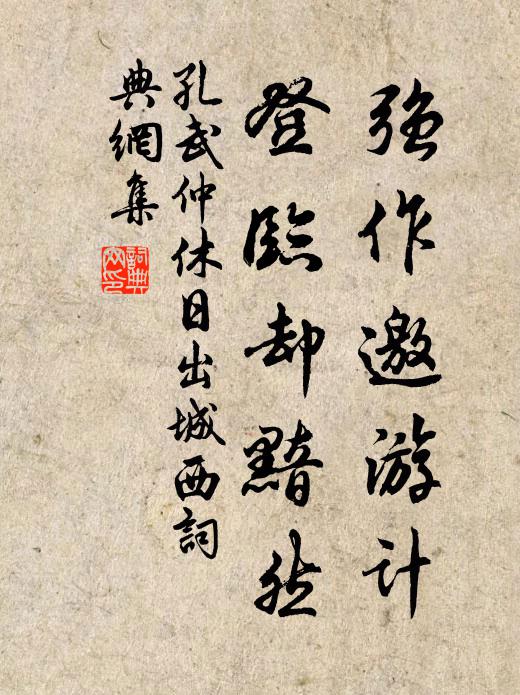 强作邀游计
登临却黯然
孔武仲休日出城西詞
典網集
詞典